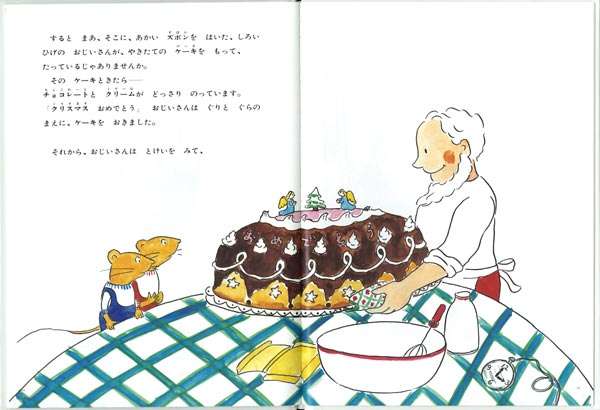 すると まあ、そこに、あかい ズボンを はいた、しろい
ひげの おじいさんが、やきたての ケーキを もって、
たっているじゃありませんか。
その ケーキときたら――
チョコレートと クリームが どっさり のっています。
「クリスマス おめでとう」 おじいさんは ぐりと ぐらの
まえに、ケーキを おきました。
それから、おじいさんは とけいを みて、
おめでとう